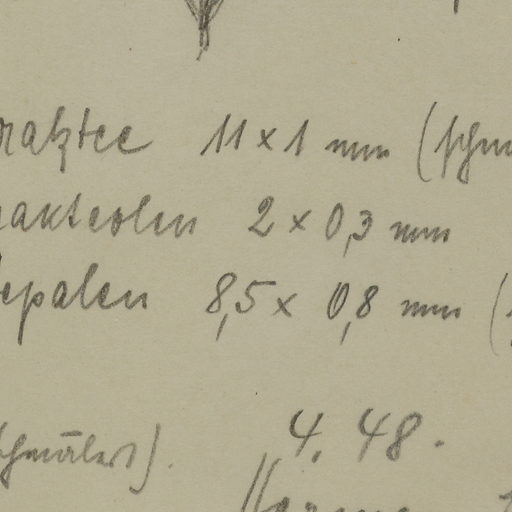 raktee 11 x 1 mm (schm
rakteolen 2 x 0,3 mm
epalen 8,5 x 0,8 mm (
4. 48.